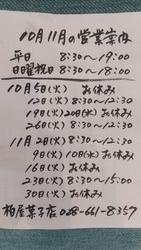 10月11月の営業案内
平日 8:30〜19:00
日曜祝日 8:30〜18:00
10月5日(火) お休み
12日(火) 8:30〜12:30
19日(火)20日(水) お休み
26日(火) 8:30〜12:30
11月2日(火) 8:30〜12:30
9日(火)10日(水) お休み
16日(火) お休み
23日(火) 8:30〜15:00
30日(火) お休み
柏屋菓子店 028-661-8357